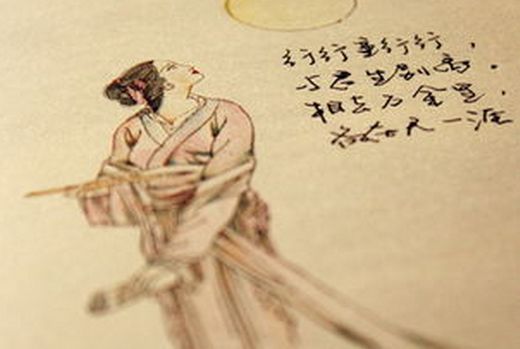 行行重行行，
与君生别离。
相去万余里，
各在天一涯